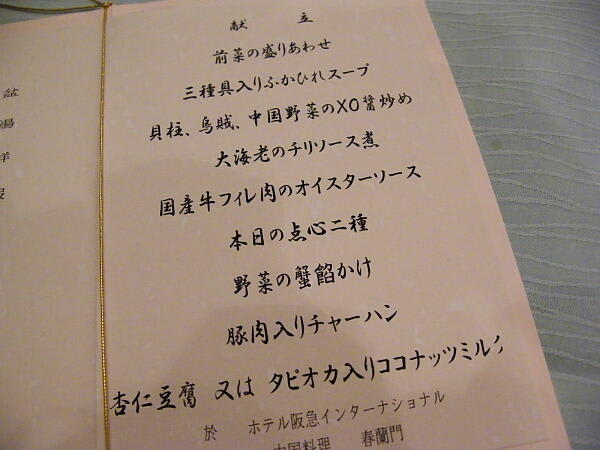 盆
湯
献 立
前菜の盛りあわせ
三種具入りふかひれスープ
貝柱、烏賊、中国野菜のXO醤炒め
大海老のチリソース煮
国産牛フィレ肉のオイスターソース
本日の点心二種
野菜の蟹餡かけ
豚肉入りチャーハン
杏仁豆腐 又は タピオカ入りココナッツミルク
於 ホテル阪急インターナショナル
中国料理 春蘭門